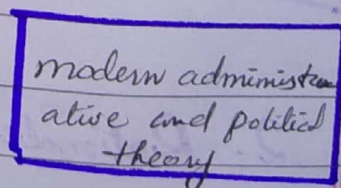 modern administra
ative and political
theory